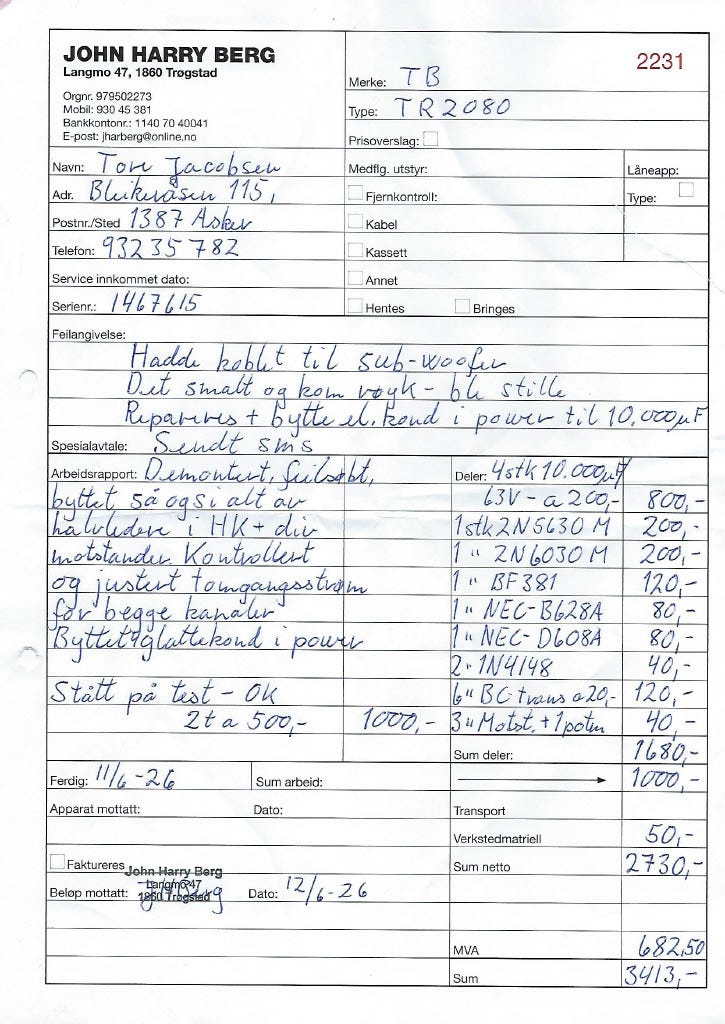 JOHN HARRY BERG
Langmo 47, 1860 Trøgstad
Orgnr. 979502273
Mobil: 930 45 381
Bankkontonr.: 1140 70 40041
E-post: jharberg@online.no
2231
Merke: TB
Type: TR2080
Prisoverslag:
Navn: Tore Jacobsen
Adr. Bleikeråsen 115,
Postnr./Sted 1387 Asker
Telefon: 932 35 782
Service innkommet dato:
Serienr.: 1467615
Medflg. utstyr:
Fjernkontroll:
Kabel
Kassett
Annet
Hentes Bringes
Låneapp:
Type:
Feilangivelse:
Hadde koblet til sub-woofer
Det smalt og kom røyk - ble stille
Repareres + bytte el. kond i power til 10.000µF
Spesialavtale: Sendt sms
Arbeidsrapport: Demontert, feilsøkt,
byttet så og si alt av
halvledere i HK + div
motstander. Kontrollert
og justert tomgangsstrøm
for begge kanaler
Byttet glattekond i power
Stått på test - OK
2t a 500,- 1000,-
Deler: 4stk 10.000µF/
63V - a 200,- 800,-
1stk 2N5630 M 200,-
1 " 2N6030 M 200,-
1 " BF381 120,-
1 " NEC-B628A 80,-
1 " NEC-D608A 80,-
2 " 1N4148 40,-
6 " BC-trans a 20,- 120,-
3 " Motst. + 1 potm 40,-
Sum deler: 1680,-
Ferdig: 11/6-26 Sum arbeid: 1000,-
Apparat mottatt: Dato: Transport
Verkstedmatriell 50,-
Faktureres Sum netto 2730,-
John Harry Berg
Langmo 47
1860 Trøgstad
Beløp mottatt: JH Berg Dato: 12/6-26
MVA 682,50
Sum 3413,-